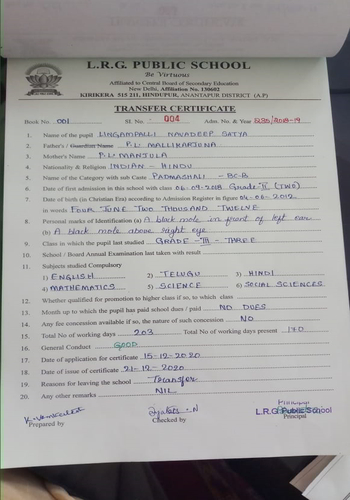 L.R.G. PUBLIC SCHOOL
Be Virtuous
Affiliated to Central Board of Secondary Education
New Delhi, Affiliation No. 130602
KIRIKERA 515 211, HINDUPUR, ANANTAPUR DISTRICT (A.P)
TRANSFER CERTIFICATE
Book No. 001 Sl. No. 004 Adm. No. & Year 5125/2018-19
1. Name of the pupil LINGAMPALLI NAVADEEP SATYA
2. Father's / Guardian Name P.L. MALLIKARJUNA
3. Mother's Name P.L. MANJULA
4. Nationality & Religion INDIAN - HINDU
5. Name of the Category with sub Caste PADMASHALI - BC-B
6. Date of first admission in this school with class 06-09-2018 Grade II (TWO)
7. Date of birth (in Christian Era) according to Admission Register in figure 04-06-2012
in words FOUR JUNE TWO THOUSAND TWELVE
8. Personal marks of Identification (a) A black mole in front of left ear.
(b) A black mole above right eye
9. Class in which the pupil last studied GRADE - III - THREE
10. School / Board Annual Examination last taken with result
11. Subjects studied Compulsory
1) ENGLISH 2) TELUGU 3) HINDI
4) MATHEMATICS 5) SCIENCE 6) SOCIAL SCIENCES
12. Whether qualified for promotion to higher class if so, to which class
13. Month up to which the pupil has paid school dues / paid NO DUES
14. Any fee concession availed if so, the nature of such concession NO
15. Total No of working days 203 Total No of working days present 180
16. General Conduct GOOD
17. Date of application for certificate 15-12-2020
18. Date of issue of certificate 21-12-2020
19. Reasons for leaving the school Transfer
20. Any other remarks NIL
Prepared by Checked by Principal
L.R.G. Public School
Principal